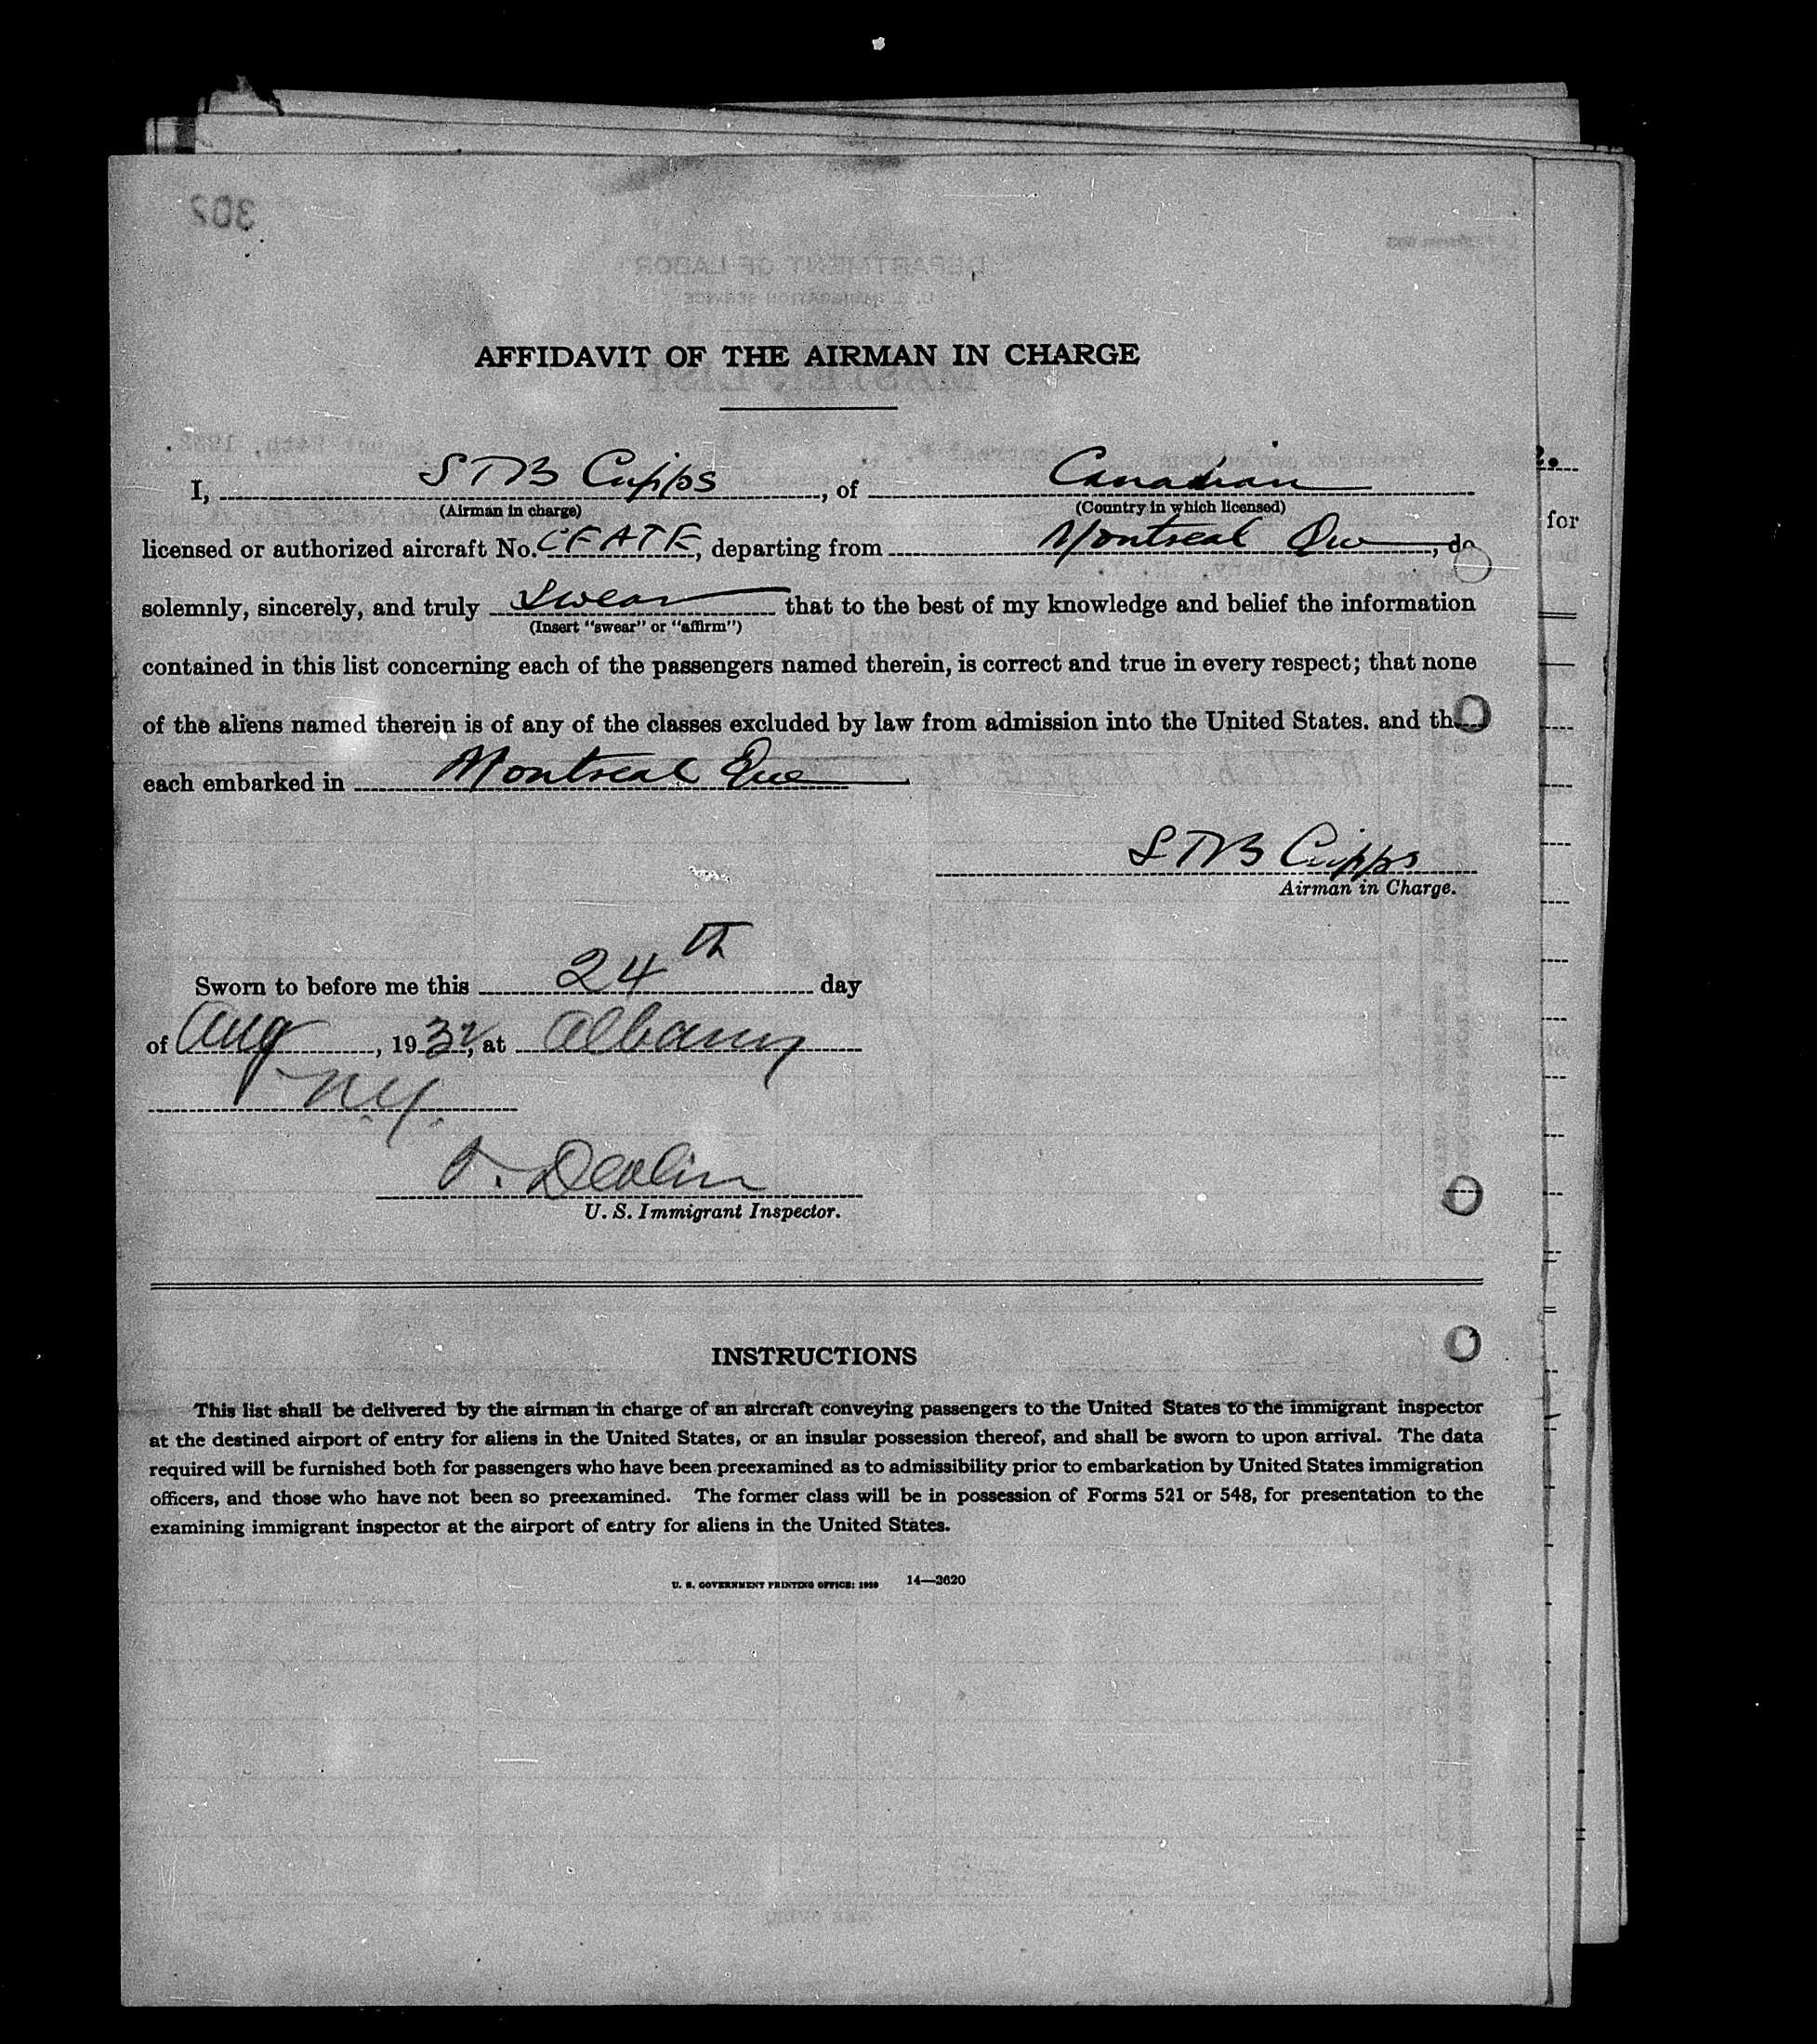 302
AFFIDAVIT OF THE AIRMAN IN CHARGE
I, STB Cupps, of Canadian
(Airman in charge) (Country in which licensed)
licensed or authorized aircraft No. CFATE, departing from Montreal Que, do
solemnly, sincerely, and truly swear that to the best of my knowledge and belief the information
(Insert "swear" or "affirm")
contained in this list concerning each of the passengers named therein, is correct and true in every respect; that none
of the aliens named therein is of any of the classes excluded by law from admission into the United States. and th
each embarked in Montreal Que.
STB Cupps
Airman in Charge.
Sworn to before me this 24th day
of Aug, 1932, at Albany
N.Y.
Devlin
U. S. Immigrant Inspector.
INSTRUCTIONS
This list shall be delivered by the airman in charge of an aircraft conveying passengers to the United States to the immigrant inspector
at the destined airport of entry for aliens in the United States, or an insular possession thereof, and shall be sworn to upon arrival. The data
required will be furnished both for passengers who have been preexamined as to admissibility prior to embarkation by United States immigration
officers, and those who have not been so preexamined. The former class will be in possession of Forms 521 or 548, for presentation to the
examining immigrant inspector at the airport of entry for aliens in the United States.
U. S. GOVERNMENT PRINTING OFFICE: 1929 14—3620
for